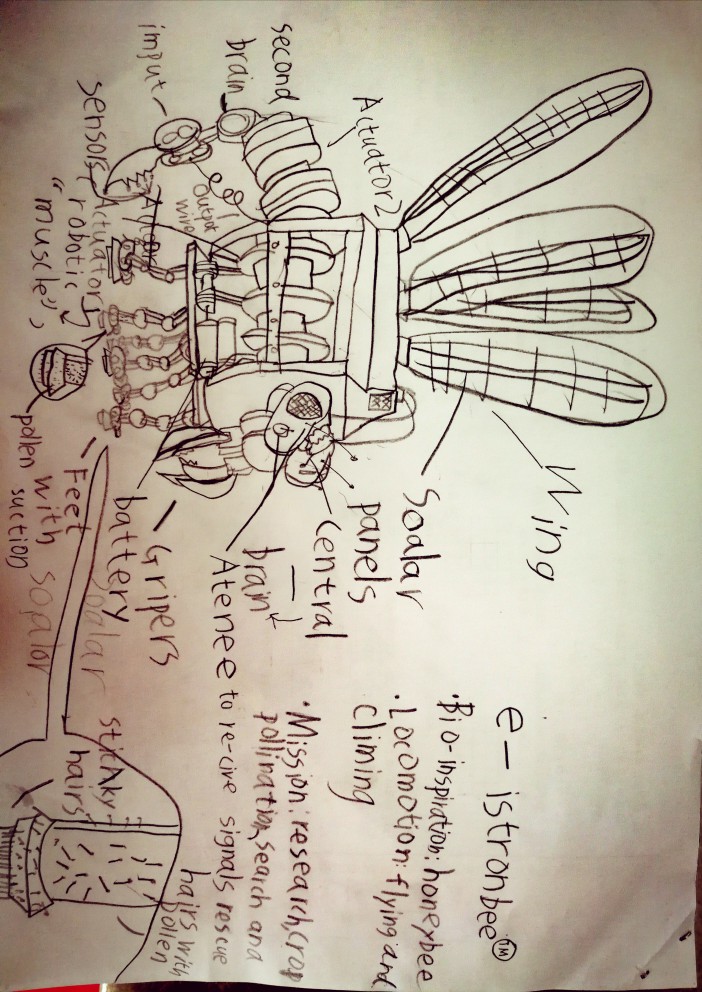 e-istronbee™
· Bio-inspiration: honeybee
· Locomotion: flying and
climing
· Mission: research, crop
pollination, search and
rescue
Wing
Soalar
panels
central
brain
Atenee to re-cive signals
Gripers
battery
Feet
pollen with
suction
Actuator2
second
brain
imput
output
wire
sensors
Actuator1
"robotic
muscle"
stichky
hairs
hairs with
pollen